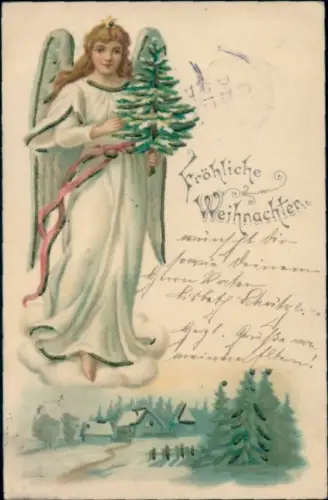 Fröhliche
Weihnachten.
wünscht Dir
sowie Deinem
Herrn Vater
Lisbeth
Hrzl. Grüße von
meinen Eltern!